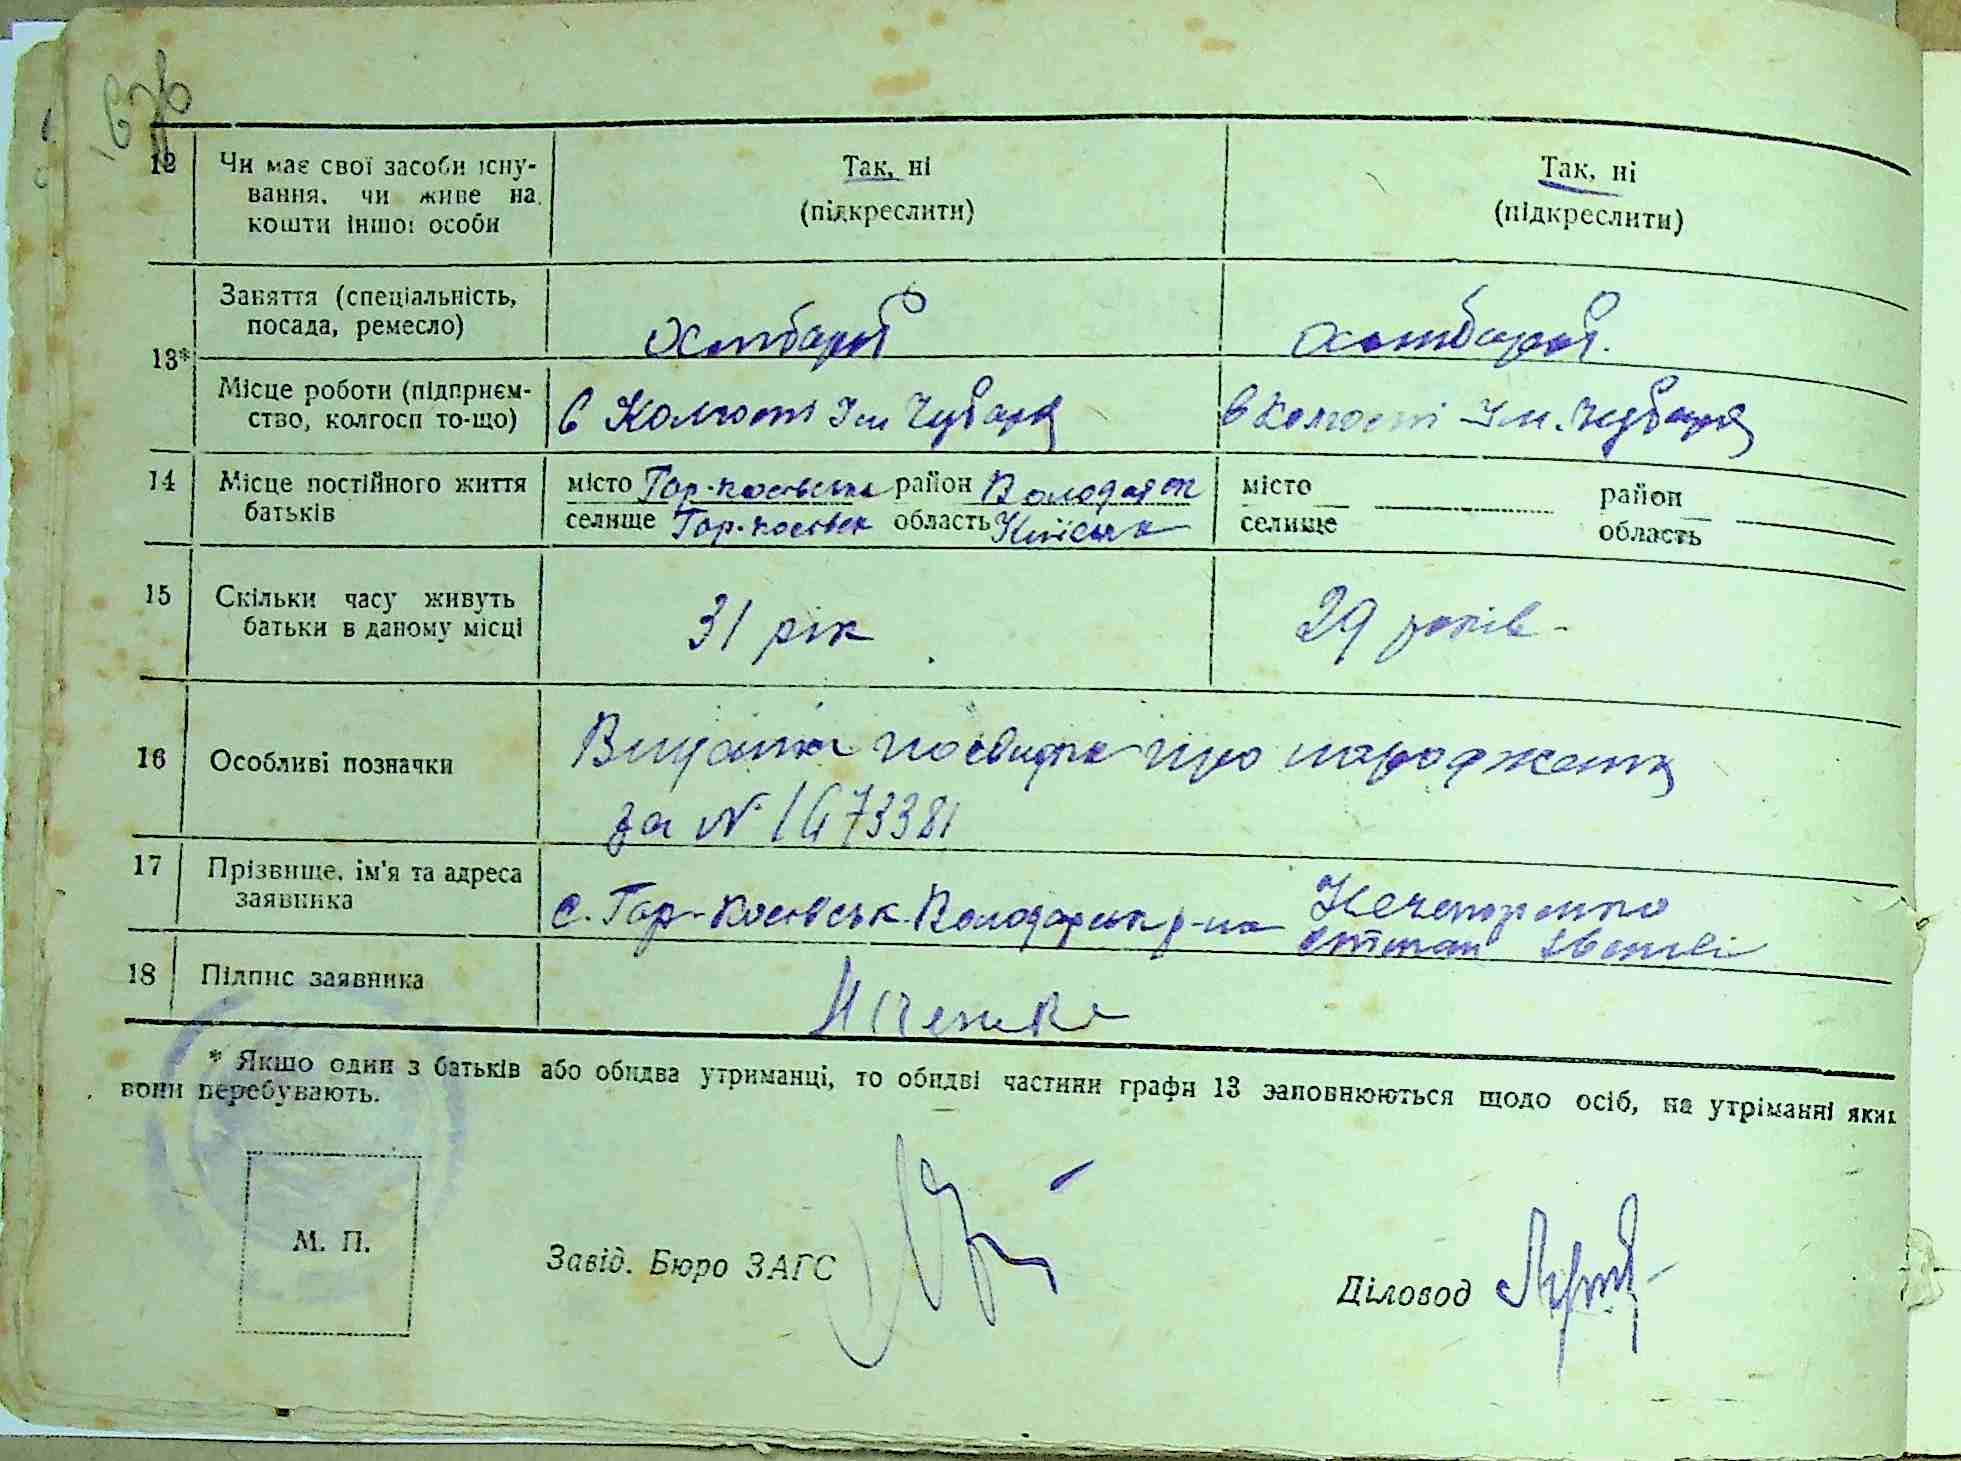 12 Чи має свої засоби існу-
вання, чи живе на
кошти іншої особи
Так, ні
(підкреслити)
Так, ні
(підкреслити)
13* Заняття (спеціальність,
посада, ремесло)
Хлібороб
Хлібороб.
Місце роботи (підприєм-
ство, колгосп то-що)
в Колгоспі Ім Чубаря
в колгоспі Ім. Чубаря
14 Місце постійного життя
батьків
місто Гор-косівська район Володарськ
селище Гор-косівск область Київська
місто район
селище область
15 Скільки часу живуть
батьки в даному місці
31 рік
29 років
16 Особливі позначки
Видана посвідка про народження
за № 1473381
17 Прізвище, ім'я та адреса
заявника
с. Гор-Косівськ Володарськ р-на Нечипоренко
Степан
18 Підпис заявника
* Якщо один з батьків або обидва утриманці, то обидві частини графи 13 заповнюються щодо осіб, на утріманні яких
вони перебувають.
М. П.
Завід. Бюро ЗАГС
Діловод